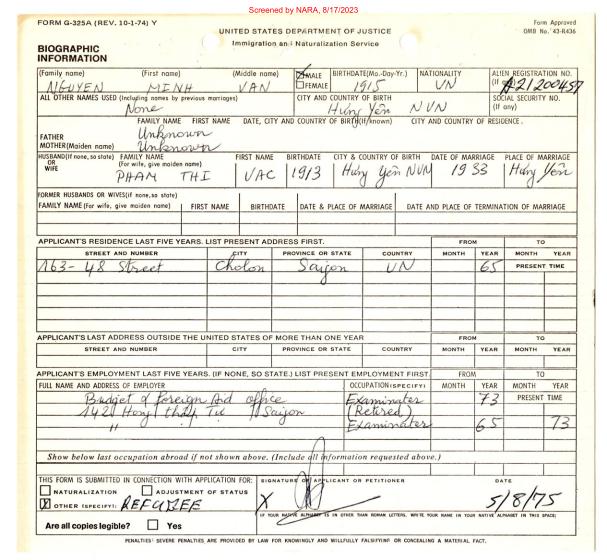 Screened by NARA, 8/17/2023
FORM G-325A (REV. 10-1-74) Y
Form Approved
OMB No. 43-R436
UNITED STATES DEPARTMENT OF JUSTICE
Immigration and Naturalization Service
BIOGRAPHIC
INFORMATION
(Family name) (First name) (Middle name) ☒ MALE BIRTHDATE(Mo.-Day-Yr.) NATIONALITY ALIEN REGISTRATION NO.
NGUYEN MINH VAN ☐ FEMALE 1915 VN (If any) A21200457
ALL OTHER NAMES USED (Including names by previous marriages) CITY AND COUNTRY OF BIRTH SOCIAL SECURITY NO.
None Hưng Yên NVN (If any)
FAMILY NAME FIRST NAME DATE, CITY AND COUNTRY OF BIRTH(If known) CITY AND COUNTRY OF RESIDENCE.
FATHER Unknown
MOTHER(Maiden name) Unknown
HUSBAND(If none, so state) OR WIFE FAMILY NAME (For wife, give maiden name) FIRST NAME BIRTHDATE CITY & COUNTRY OF BIRTH DATE OF MARRIAGE PLACE OF MARRIAGE
PHAM THI VAC 1913 Hưng Yên NVN 1933 Hưng Yên
FORMER HUSBANDS OR WIVES(if none,so state)
FAMILY NAME (For wife, give maiden name) FIRST NAME BIRTHDATE DATE & PLACE OF MARRIAGE DATE AND PLACE OF TERMINATION OF MARRIAGE
APPLICANT'S RESIDENCE LAST FIVE YEARS. LIST PRESENT ADDRESS FIRST. FROM TO
STREET AND NUMBER CITY PROVINCE OR STATE COUNTRY MONTH YEAR MONTH YEAR
163- 48 Street Cholon Saigon VN 65 PRESENT TIME
APPLICANT'S LAST ADDRESS OUTSIDE THE UNITED STATES OF MORE THAN ONE YEAR FROM TO
STREET AND NUMBER CITY PROVINCE OR STATE COUNTRY MONTH YEAR MONTH YEAR
APPLICANT'S EMPLOYMENT LAST FIVE YEARS. (IF NONE, SO STATE.) LIST PRESENT EMPLOYMENT FIRST. FROM TO
FULL NAME AND ADDRESS OF EMPLOYER OCCUPATION(SPECIFY) MONTH YEAR MONTH YEAR
Budget & foreign Aid office Examinater 73 PRESENT TIME
142 Hong thập Tư Saigon (Retired)
" Examinater 65 73
Show below last occupation abroad if not shown above. (Include all information requested above.)
THIS FORM IS SUBMITTED IN CONNECTION WITH APPLICATION FOR: SIGNATURE OF APPLICANT OR PETITIONER DATE
☐ NATURALIZATION ☐ ADJUSTMENT OF STATUS
☒ OTHER (SPECIFY): REFUGEE X 5/8/75
Are all copies legible? ☐ Yes
IF YOUR NATIVE ALPHABET IS IN OTHER THAN ROMAN LETTERS, WRITE YOUR NAME IN YOUR NATIVE ALPHABET IN THIS SPACE:
PENALTIES: SEVERE PENALTIES ARE PROVIDED BY LAW FOR KNOWINGLY AND WILLFULLY FALSIFYING OR CONCEALING A MATERIAL FACT.